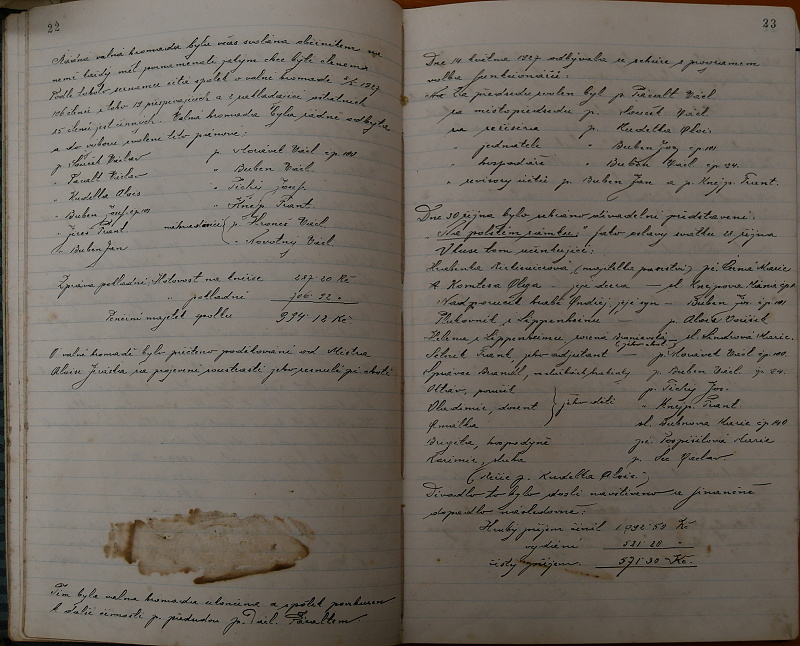 22
Řádná valná hromada byla včas svolána oběžníkem na
němž každý měl poznamenáte jakým chce býti členem
Podle tohoto seznamu čítá spolek o valné hromadě 2/2 1927
106 členů z toho 19 přispívajících a 2 zakládající ostatních
15 členů jest činných. Valná hromada byla řádně odbyta
a do výboru zvoleni tito pánové:
p. Souček Václav p. Morávek Václ čp 101
" Favalt Václav " Buben Václ.
" Kudelka Alois " Tichý Josef
" Buben Josef čp 101 " Knejp Frant
" Jireš Frant náhradníci p. Franeš Václ
" Buben Jan " Novotný Václ
Zpráva pokladní: Hotovost na knížce 287·20 Kč
" pokladní 706·92 "
Peněžní majetek spolku 994·12 Kč.
O valné hromadě bylo přečteno poděkování od Mistra
Aloise Jiráska za projevení soustrasti jeho zesnulé při choti
Tím byla valná hromada ukončena a spolek povzbuzen
k další činnosti p. předsedou p. Václ. Favaltem
23
Dne 14 května 1927 odbývala se schůze s programem
volba funkcionářů:
Na Za předsedu zvolen byl p. Favalt Václ
za místopředsedu p. Souček Václ
za režiséra p. Kudelka Alois.
" jednatele " Buben Josef čp 101
" hospodáře " Buben Václ čp 24.
" revisory účtů p. Buben Jan a p. Knejp. Frant.
Dne 30 října bylo sehráno divadelní představení:
"Na polském zámku" jako oslavy svátku 28 října
V kuse tom účinkující:
Hraběnka (majitelka panství) pí.
A. Komtesa Olga – její dcera – sl. Knejpova
Nadporučík hrabě Ondřej, její syn – Buben Jos. čp 101
Plukovník z Lippenheimu – p. Alois Souček
Helena z Lippenheimu rozená sl. Marie.
Setník Frant, jeho adjutant – p. Morávek Václ čp 100.
Správce p. Buben Václ čp 24.
poručík p. Tichý Jos.
Vladimír, docent jeho děti " Knejp. Frant
sl. Bubnova Marie čp 140
Brigita, hospodyně pí. Pospíšilová Marie
Kazimir, sluha p. Václav
(Režie p. Kudelka Alois.)
Divadlo to bylo dosti navštíveno a finančně
dopadlo následovně:
Hrubý příjem činil 1092·50 Kč
vydání 521·20 "
čistý příjem 571·30 Kč.